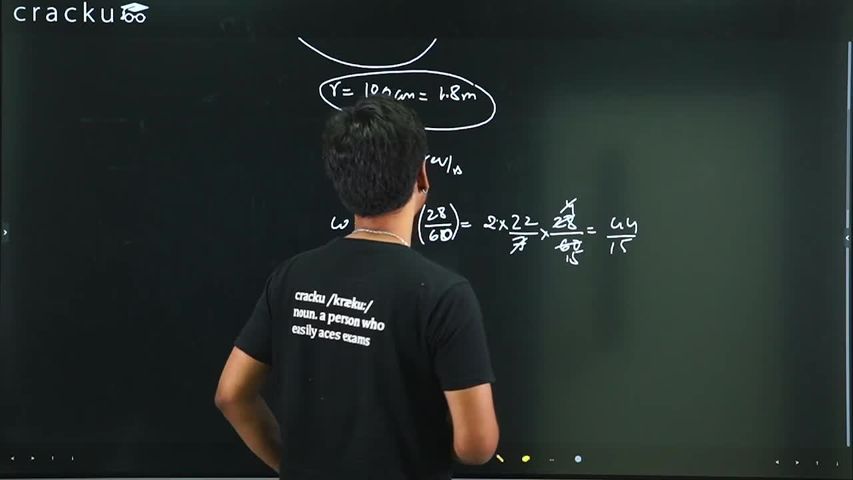 cracku
r = 10 cm = 1.8m
rev/s
ω (28/60) = 2 × 22/7 × 28/60 = 44/15
4
15
cracku /kræku:/
noun. a person who
easily aces exams